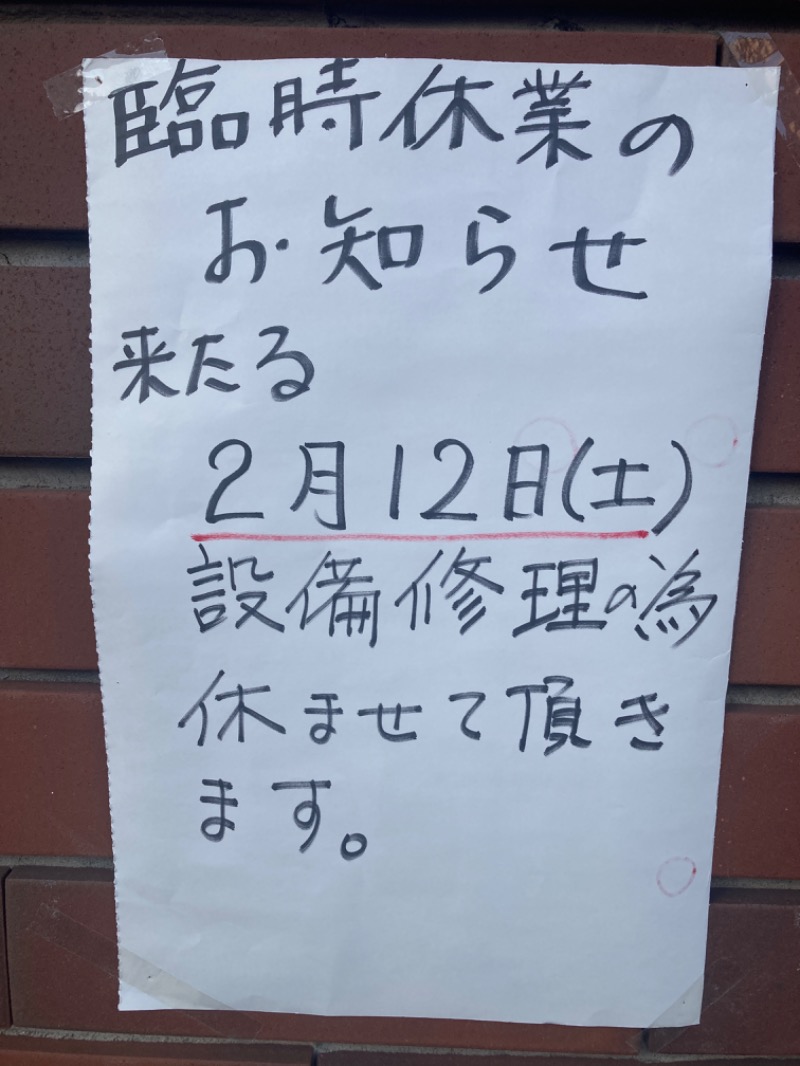 臨時休業の
お知らせ
来たる
2月12日(土)
設備修理の為
休ませて頂き
ます。